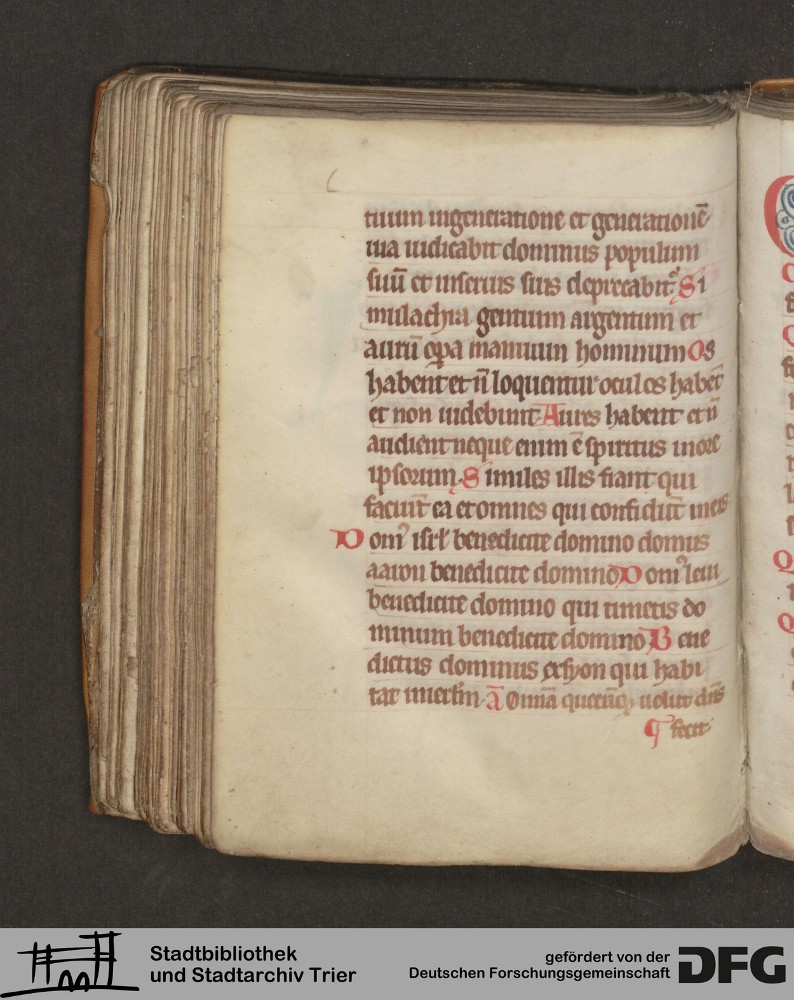 tuum in generatione et generationē
Quia iudicabit dominus populum
suū et in seruis suis deprecabit᷑ Si
mulachra gentium argentum et
aurū opa manuum hominum Os
habent et ñ loquentur oculos habēt
et non uidebunt Aures habent et ñ
audient neque enim ē spiritus in ore
ipsorum Similes illis fiant qui
faciunt ea et omnes qui confidūt in eis
Domꝰ isrl̄ benedicite domino domus
aaron benedicite domino Domꝰ leui
benedicite domino qui timetis do
minum benedicite domino Bene
dictus dominus ex syon qui habi
tat in ierl̄m ā Omīa quecūqꝫ uoluit dn̄s
¶ fecit
Stadtbibliothek
und Stadtarchiv Trier
gefördert von der
Deutschen Forschungsgemeinschaft
DFG